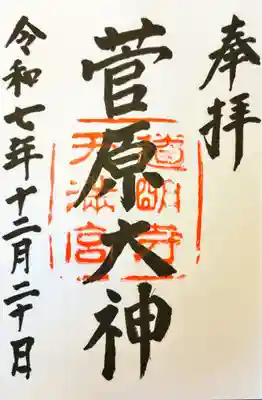 奉拝
菅原大神
道明寺
天満宮
令和七年十二月二十日